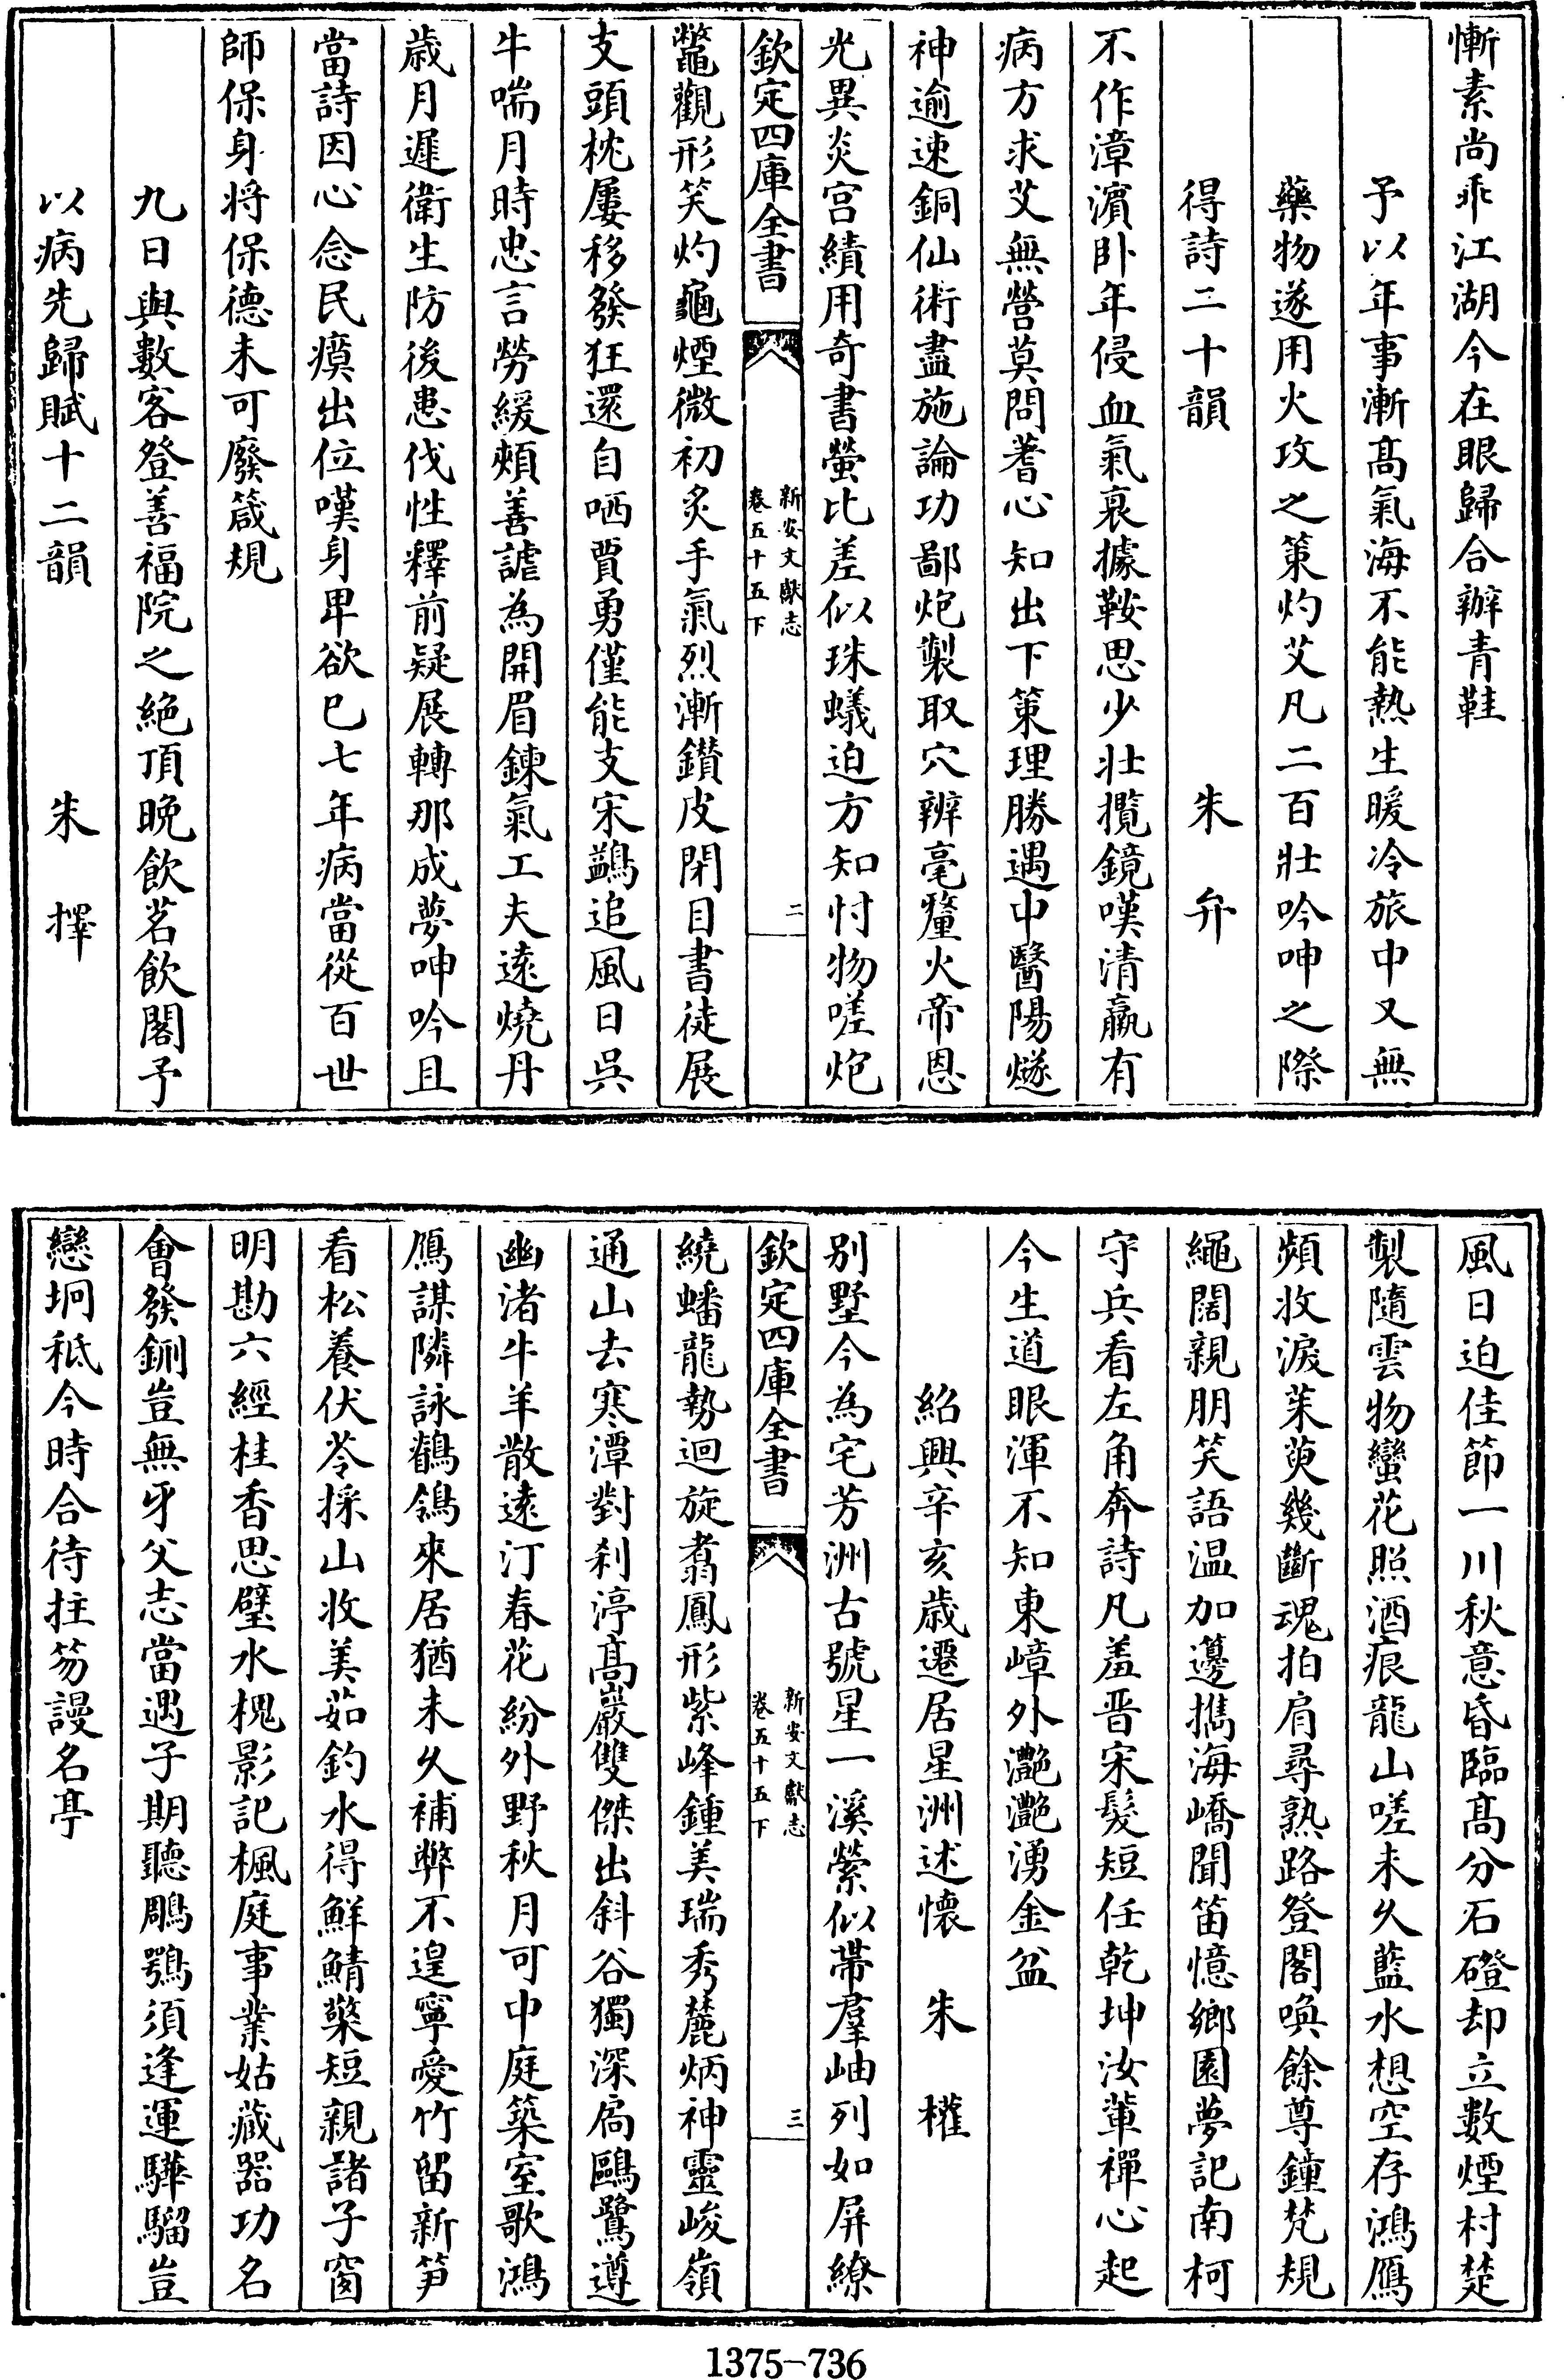 慚素尚乖江湖今在眼歸合辦青鞋
予以年事漸髙氣海不能熱生暖冷旅中又無
藥物遂用火攻之策灼艾凡二百壯吟呻之際
得詩二十韻 朱弁
不作漳濵卧年侵血氣衰據鞍思少壯攬鏡嘆清羸有
病方求艾無營莫問蓍心知出下策理勝遇中醫陽燧
神逾速銅仙術盡施論功鄙炮製取穴辨毫釐火帝恩
光異炎宫績用奇書螢比差似珠蟻迫方知忖物嗟炮
欽定四庫全書
新安文獻志
卷五十五下
二
鼈觀形笑灼龜煙微初炙手氣烈漸鑚皮閉目書徒展
支頭枕屢移發狂還自哂賈勇僅能支宋鷁追風日吳
牛喘月時忠言勞緩頰善謔為開眉鍊氣工夫逺燒丹
歲月遲衛生防後患伐性釋前疑展轉那成夢呻吟且
當詩因心念民瘼出位嘆身卑欲已七年病當從百世
師保身将保德未可廢箴規
九日與數客登善福院之絶頂晩飲茗飲閣予
以病先歸賦十二韻 朱擇
風日迫佳節一川秋意昏臨髙分石磴却立數煙村楚
製隨雲物蠻花照酒痕龍山嗟未久藍水想空存鴻鴈
頻收淚茱萸幾斷魂拍肩尋熟路登閣喚餘尊鐘梵規
繩闊親朋笑語温加邊㩦海嶠聞笛憶鄉園夢記南柯
守兵看左角奔詩凡羞晋宋髮短任乾坤汝輩禪心起
今生道眼渾不知東嶂外灧灧湧金盆
紹興辛亥歲遷居星洲述懷 朱權
别墅今為宅芳洲古號星一溪縈似帶羣岫列如屏繚
欽定四庫全書
新安文獻志
卷五十五下
三
繞蟠龍勢迴旋翥鳳形紫峰鍾美瑞秀麓炳神靈峻嶺
通山去寒潭對刹渟髙巖雙傑出斜谷獨深扃鷗鷺遵
幽渚牛羊散逺汀春花紛外野秋月可中庭築室歌鴻
鴈謀隣詠鶺鴒來居猶未久補弊不遑寧愛竹留新笋
看松養伏苓採山收美茹釣水得鮮鯖檠短親諸子窗
明勘六經桂香思璧水槐影記楓庭事業姑藏器功名
㑹發鉶豈無牙父志當遇子期聽鵰鶚須逢運驊騮豈
戀坰秪今時合待拄笏謾名亭
1375-736